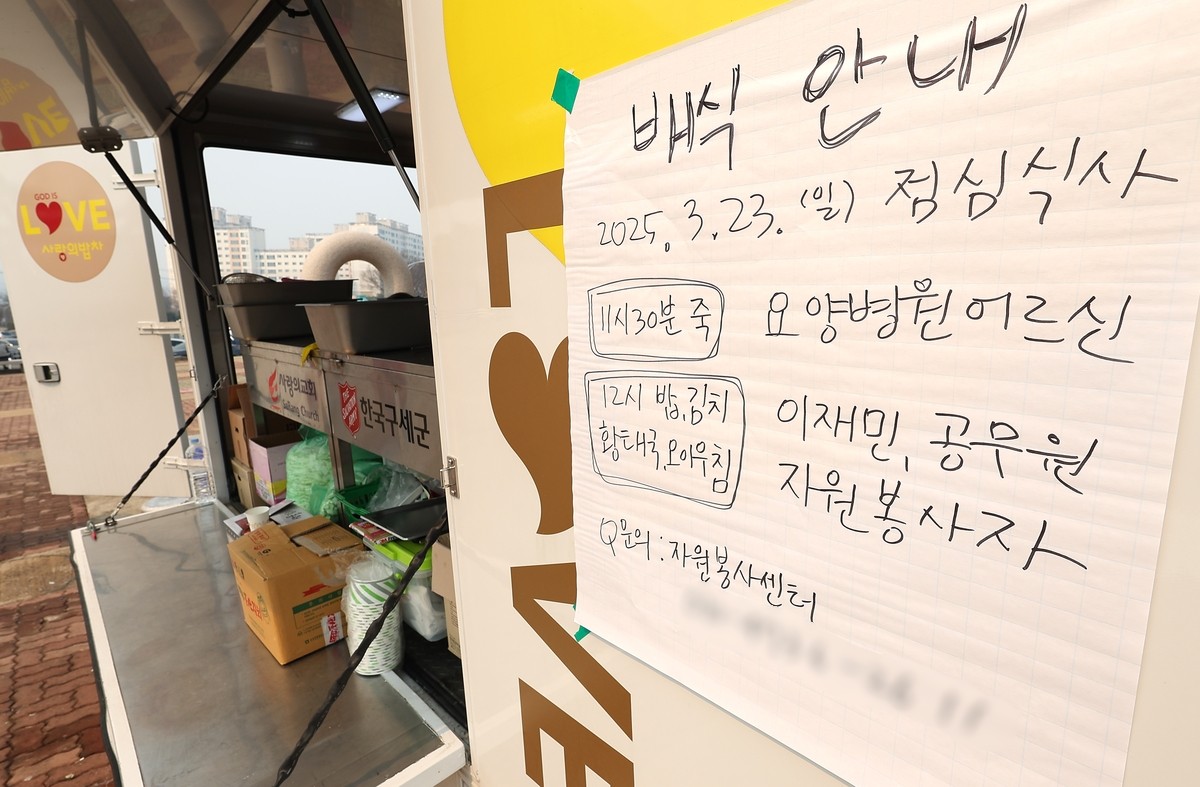 배식 안내
2025. 3. 23. (일) 점심식사
11시30분 죽
요양병원어르신
12시 밥,김치
황태국,오이무침
이재민, 공무원
자원봉사자
Q문의 : 자원봉사센터
GOD IS
LOVE
사랑의밥차
사랑의교회
SaRang Church
THE SALVATION ARMY
한국구세군
LOVE